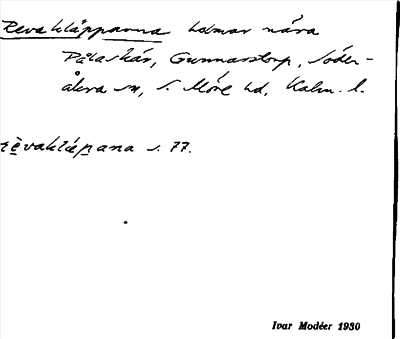 Revakläpparna holmar nära
Påtaskär, Gunnarstorp, Söder-
åkra sn, S. Möre hd, Kalm. l.
rèvaklápana s. 77.
Ivar Modéer 1930